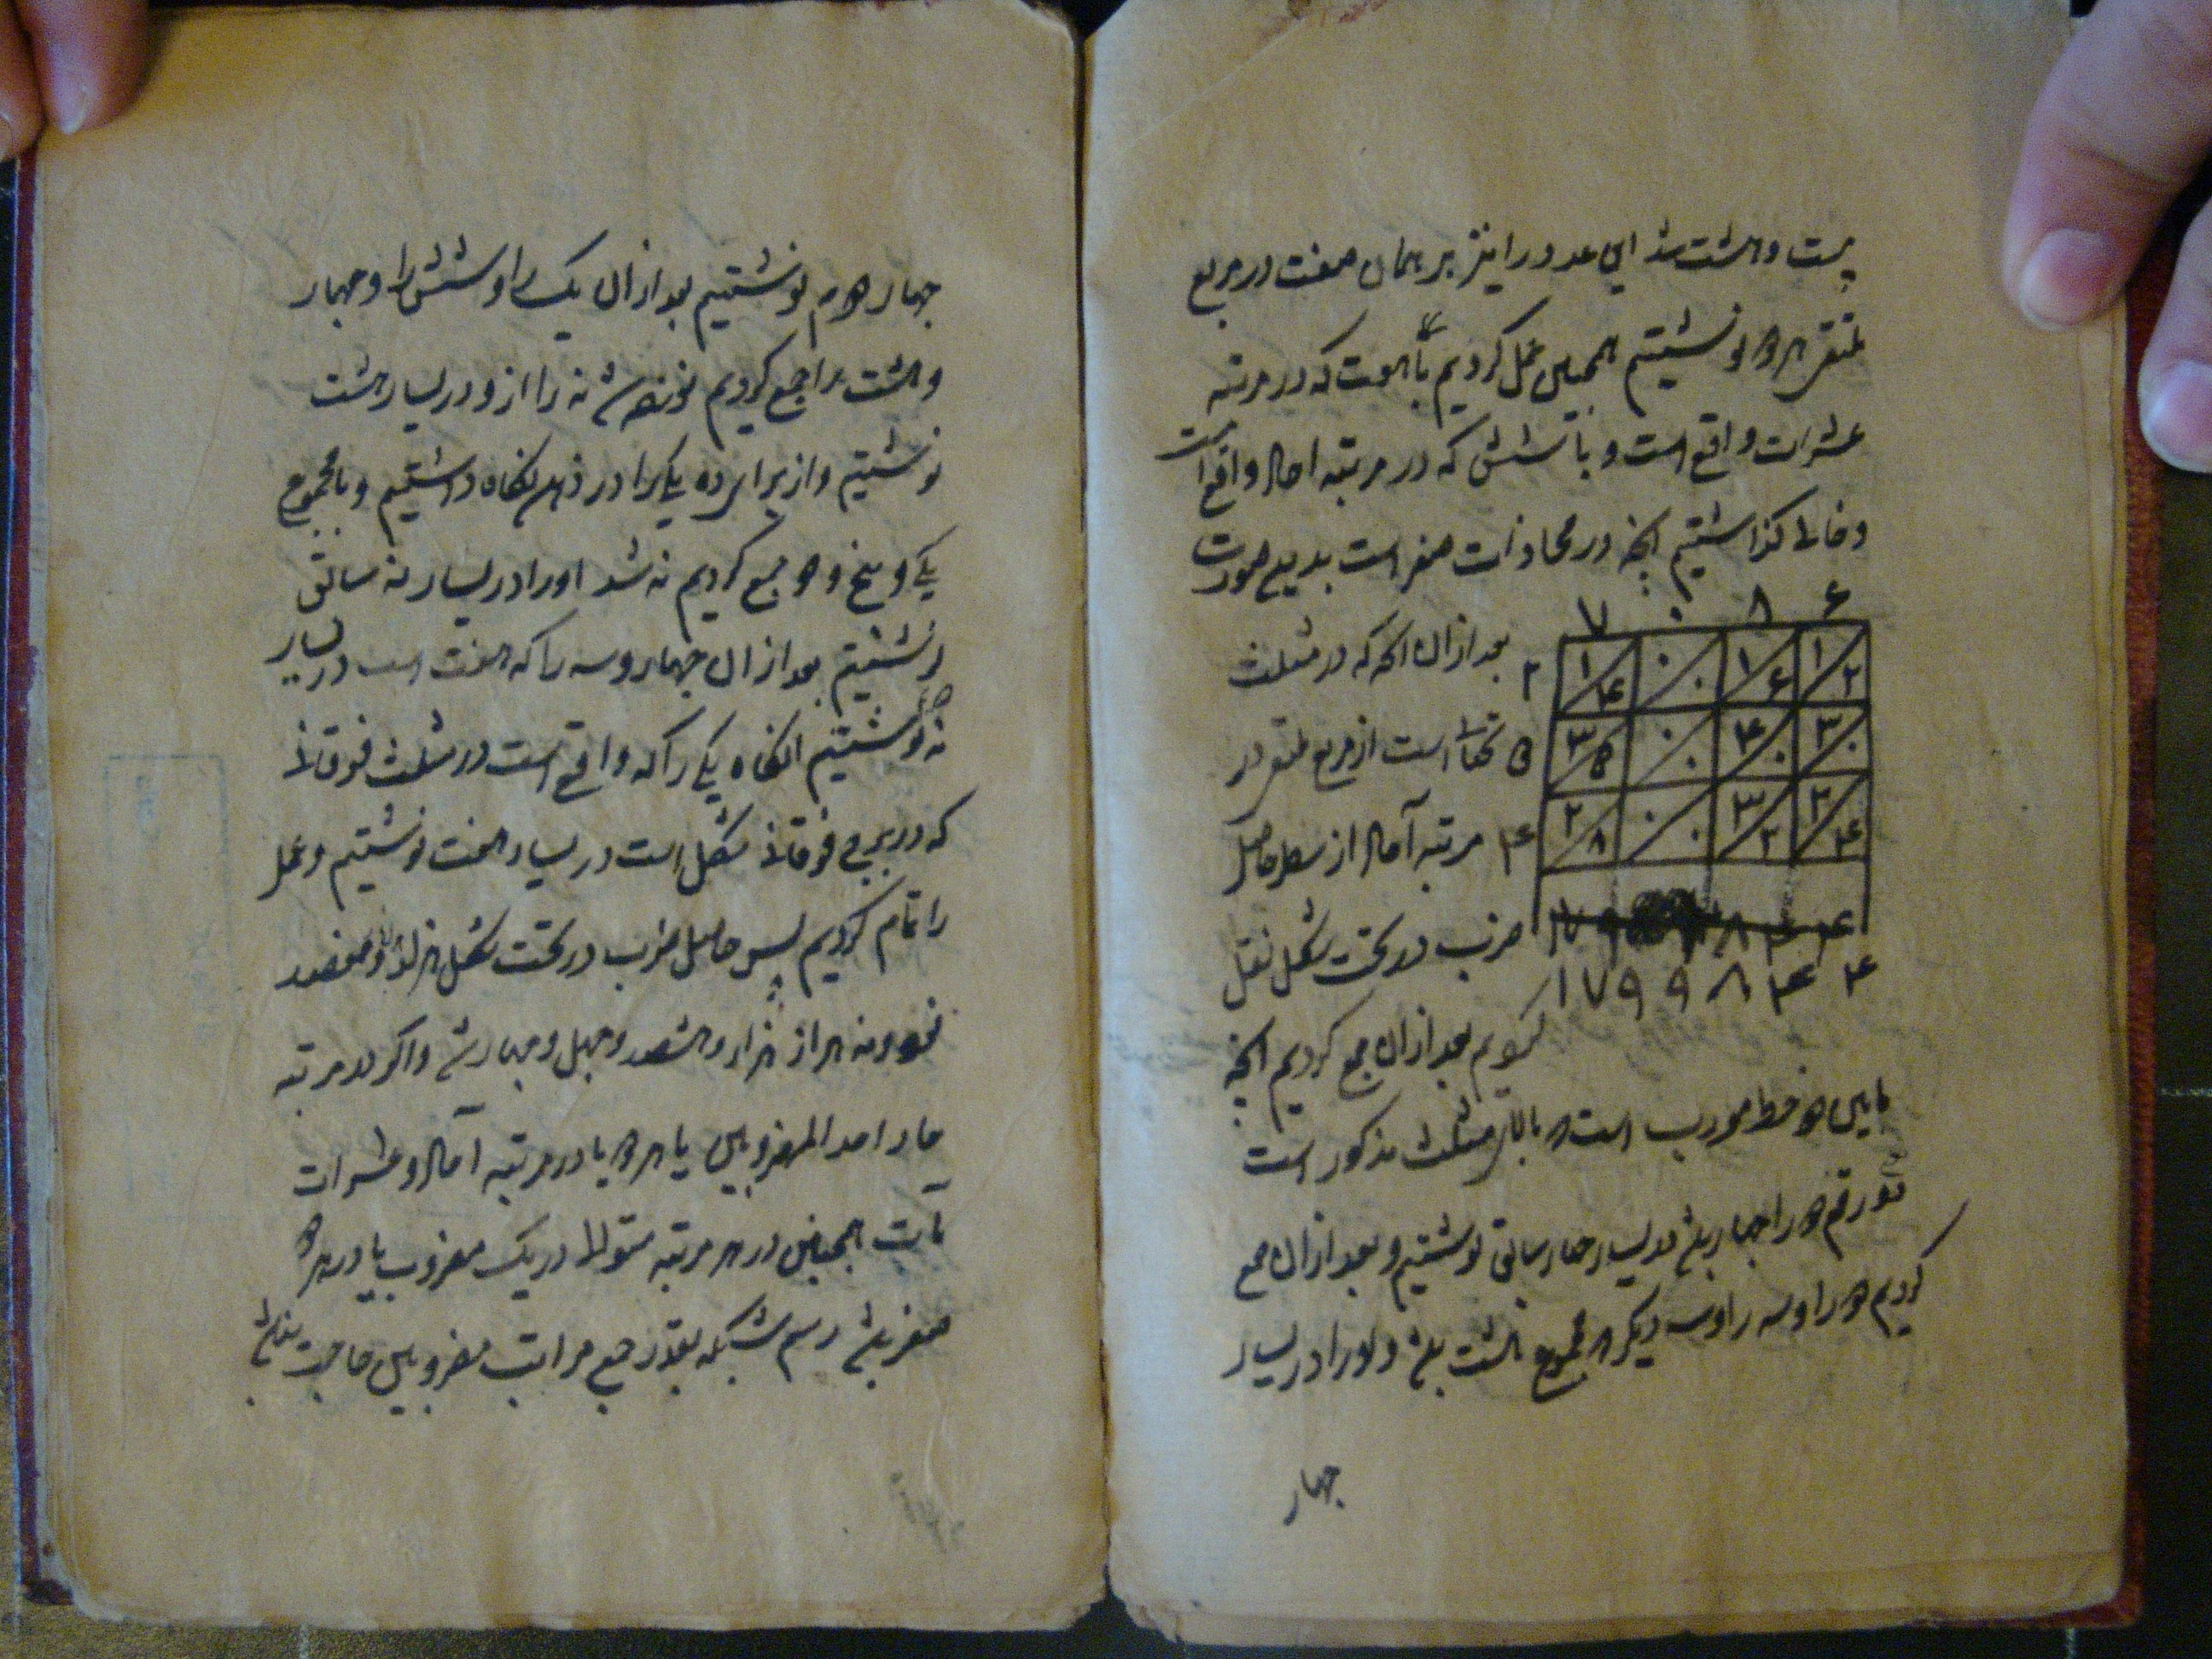 بیست و هشت شد این عدد را نیز بر همان صفت در مربع
ملتقی هر دو نوشتیم همچنین عمل کردیم با هفت که در مرتبه
عشرات واقع است و با شش که در مرتبه احاد واقع است
و خالی گذاشتیم آنچه در محاذات صفر است بدین صورت
۷ ۰ ۸ ۶
بعد از ان آنکه که در مثلث
۲ ۱ ۴ ۰ ۰ ۱ ۶ ۱ ۲
تحتانی است از مربع ملتقی در
۵ ۳ ۵ ۰ ۰ ۴ ۰ ۳ ۰
مرتبه آحاد از سطر حاصل
۴ ۲ ۸ ۰ ۰ ۳ ۲ ۲ ۴
ضرب در تحت شکل نقل
۱۷۹۹۸۴۴
کردیم بعد از ان جمع کردیم آنچه
مابین دو خط مورب است بالای مثلث مذکور است
دو را چهار در یسار چهار سابق نوشتیم و بعد از ان جمع
کردیم دو را و سه را و سه دیگر مجموع هشت و او را در یسار
چهار
چهار دوم نوشتیم بعد از ان یک را و شش را و چهار
و هشت را جمع کردیم نوزده شد نه را از و در یسار هشت
نوشتیم و از برای ده یکی را در ذهن نگاه داشتیم و با مجموع
یکی و پنج و دو جمع کردیم نه شد او را در یسار نه سابق
نوشتیم بعد از ان چهار و سه را که هفت است در یسار
نه نوشتیم انگاه یکی را که واقع است در مثلث فوقانی
که در مربع فوقانی شکل است در یسار هفت نوشتیم و عمل
را تمام کردیم پس حاصل ضرب در تحت شکل هزار هزار و هفتصد
نود و نه هزار و هشتصد و چهل و چهار شد و اگر در مرتبه
احاد احد المضروبین یا هر دو یا در مرتبه آحاد و عشرات
یا همچنین در هر مرتبه متوالی در یک مضروب یا در هر دو
صفر باشد رسم شبکه بقدر جمیع مراتب مضروبین حاجت نباشد